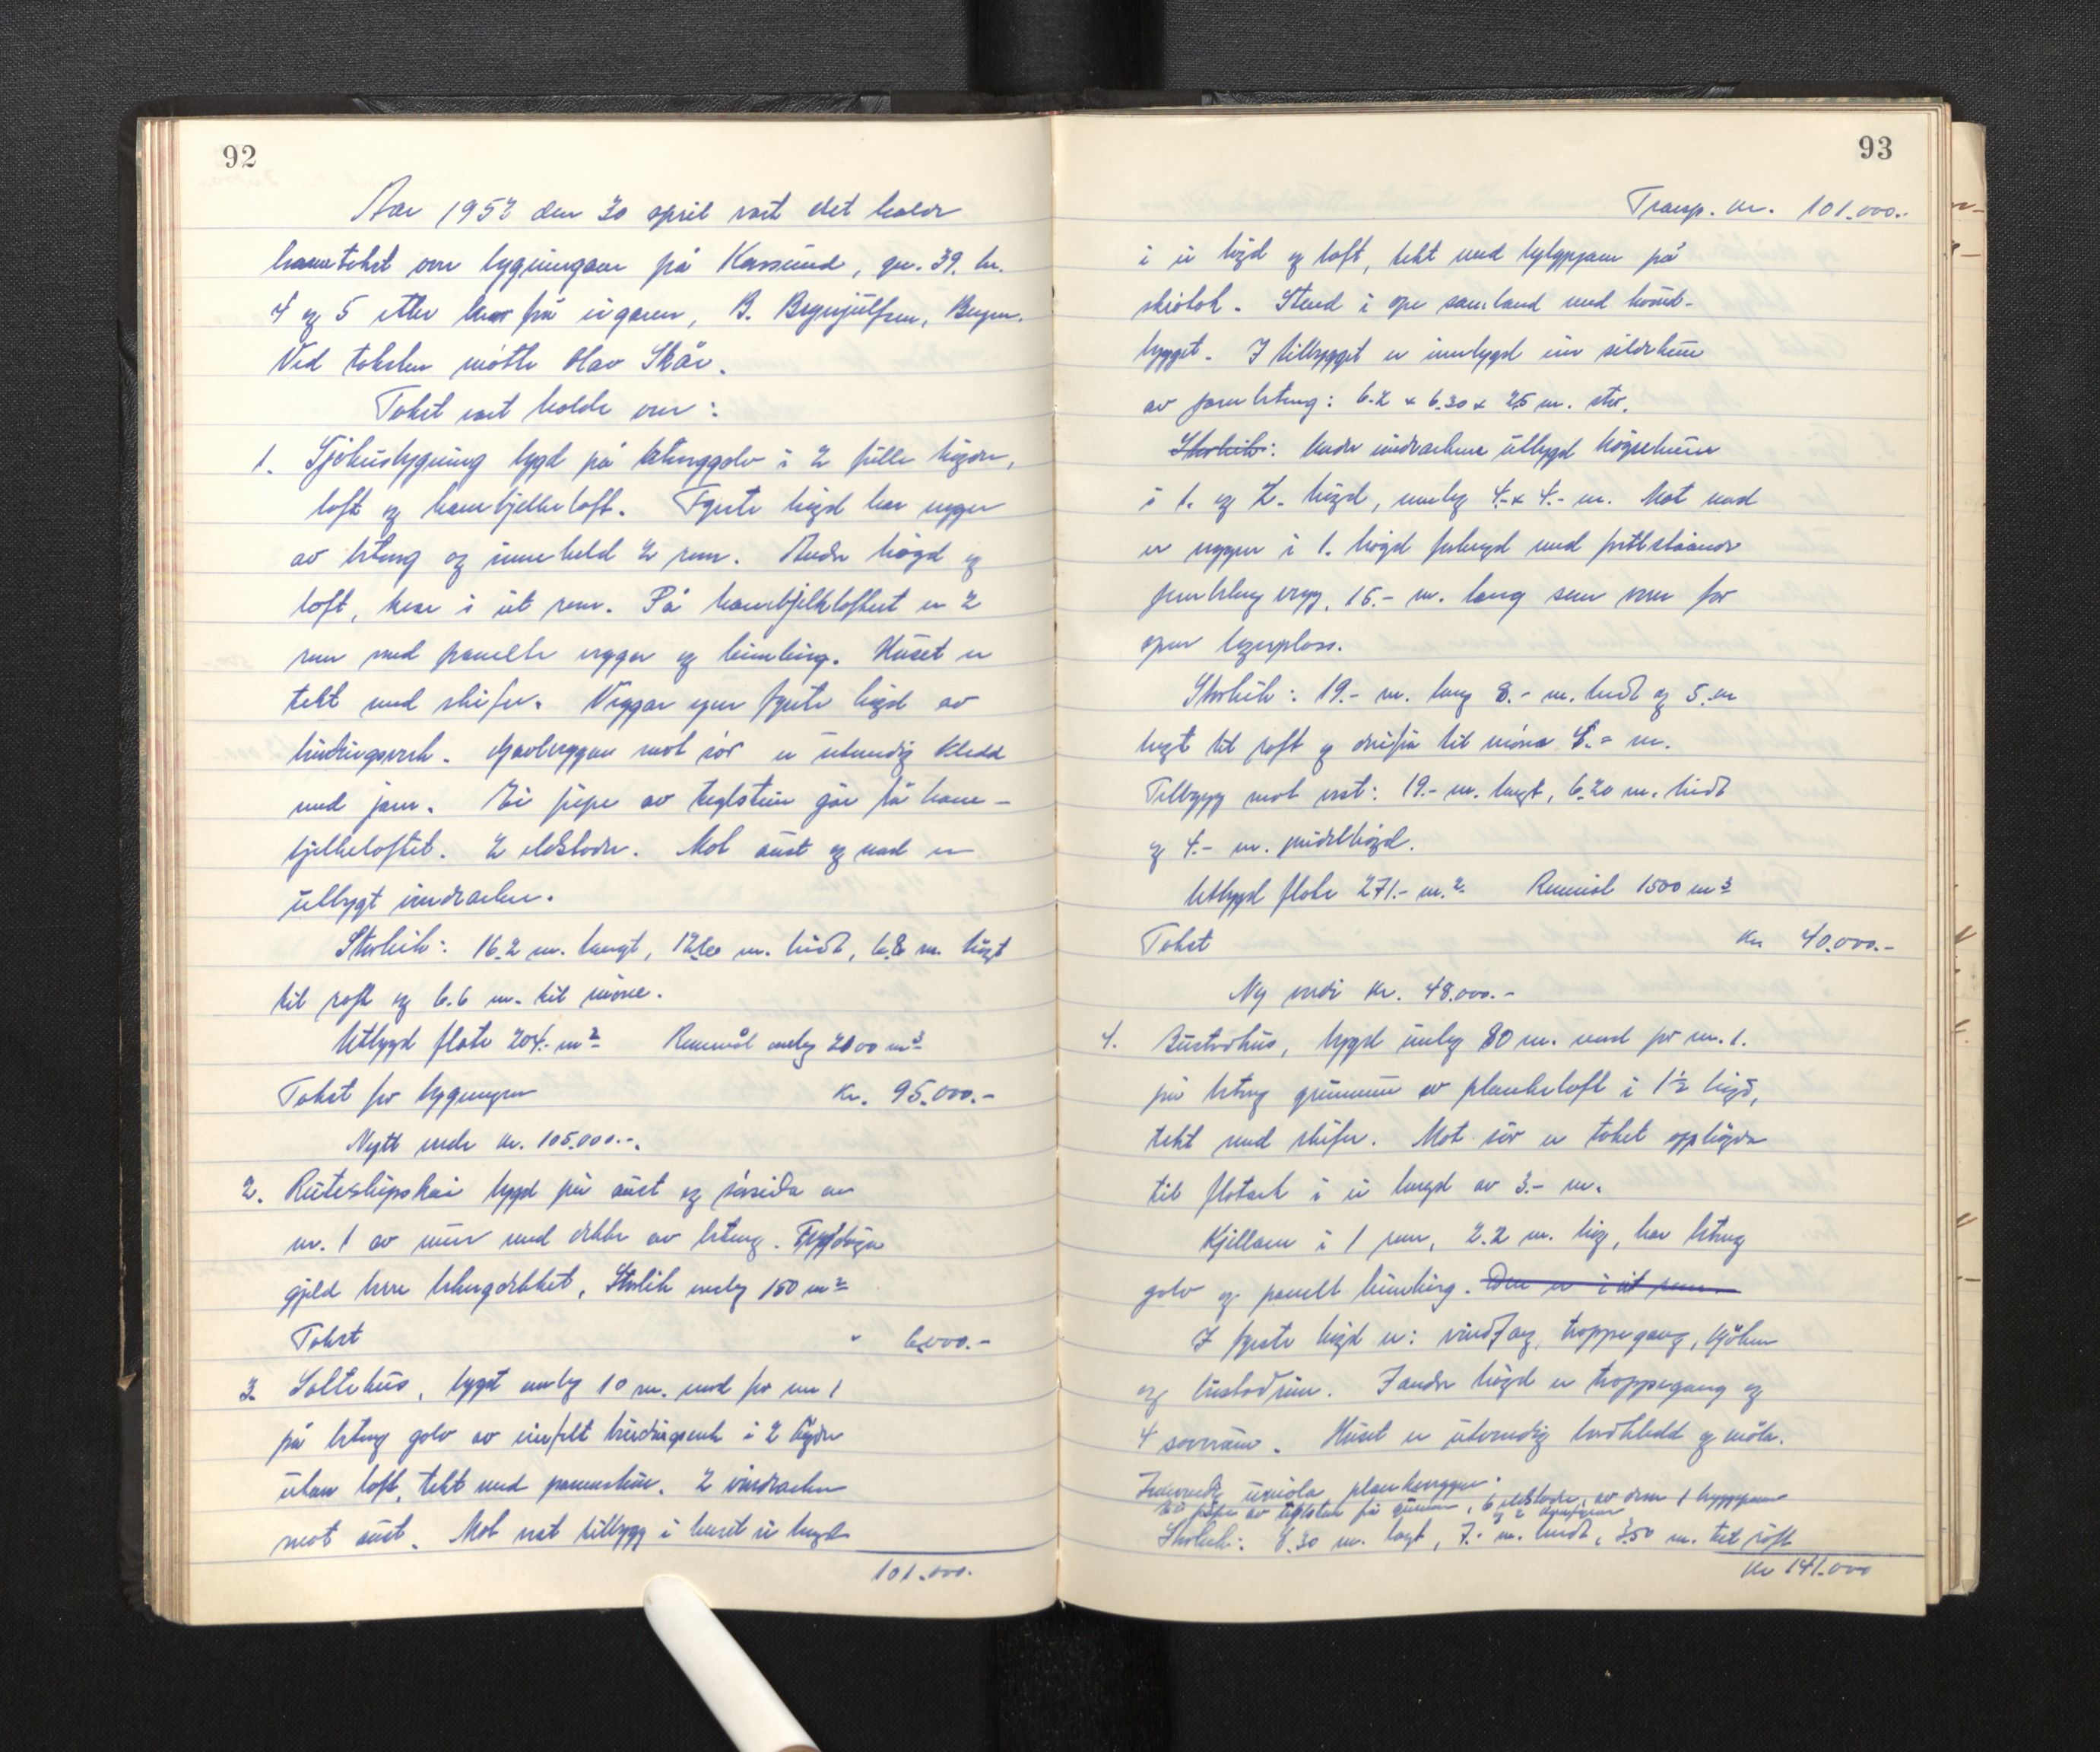 92
Aar 1953 den 30 april vart det halde
branntakst over bygningane på Kersund, gnr. 39. br.
4 og 5 etter krav frå eigaren, B. Brynjulfsen, Bergen.
Ved taksten møtte Olav Skår.
Takst vart halde over:
1. Sjøhusbygning bygd på betonggolv i 2 fulle høgder,
loft og hanebjelkeloft. Fyrste høgd har vegger
av betong og inneheld 2 rom. Andre høgd og
loft, kvar i eit rom. På hanebjelkeloftet er 2
rom med panelte vegger og himling. Huset er
tekt med skifer. Veggar yver fyrste høgd av
bindingsverk. Gavlveggen mot sør er utvendig kledd
med jarn. Ei pipe av teglstein går frå hane-
bjelkeloftet. 2 eldstader. Mot aust og nord er
utbygt vindearker.
Storleik: 16.2 m. langt, 12.60 m. breidt, 6.8 m. høgt
til raft og 6.6 m. til møne.
Utbygd flate 204.- m² Rommål omlag 2100 m³
Takst for bygningen Kr. 95.000.-
Nytt verde kr. 105.000.-.
2. Ruteskipskai bygd på aust og sørsida av
nr. 1 av mur med dekke av betong.
gjeld berre betongdekket, Storleik omlag 150 m²
Takst " 6.000.-
3. Saltehus, bygt omlag 10 m. nord for nr 1
på betong golv av einfelt bindingsverk i 2 høgder
utan loft, tekt med pannestein. 2 vindearker
mot aust. Mot vest tilbygg i huset si lengde
101.000.
93
Transp. kr. 101.000.-
i ei høgd og loft, tekt med bylgjejarn på
skråtak. Stend i ope samband med hovud-
bygget. I tilbygget er innbygd ein sildekum
av jarnbetong: 6.2 x 6.30 x 2.5 m. stor.
Storleik: Under vindearkene utbygd
i 1. og 2. høgd, omlag 4.- x 4.- m. Mot nord
er veggen i 1. høgd forlengd med frittståande
jarnbetong vegg, 15.- m. lang som vern for
open lagerplass.
Storleik: 19.- m. lang 8.- m. breidt og 5. m
høgt til raft og derifrå til møna 4.- m.
Tilbygg mot vest: 19.- m. langt, 6.20 m. breidt
og 4.- m. middelhøgd.
Utbygd flate 271.- m.² Rommål 1500 m³
Takst Kr 40.000.-
Ny verdi kr. 48.000.-
4. Bustadhus, bygd omlag 80 m. nord for nr. 1.
på betong grunnmur av plankeloft i 1½ høgd,
tekt med skifer. Mot sør er taket opphøgda
til flatark i ei lengd av 3.- m.
Kjellaren i 1 rom, 2.2 m. høg, har betong
golv og panelt himling. Den er i eit rom.
I fyrste høgd er: vindfang, trappegang, kjøken
og bustadrum. I andre høgd er trappegang og
4 soverom. Huset er utvendig bordkledd og måla.
Innvendig umåla plankevegger.
Ei pipe av teglstein frå grunnen, 6 eldstader, av dem 1
Storleik: 8.30 m. langt, 7.- m. breidt, 3.50 m. til raft
Kr 141.000